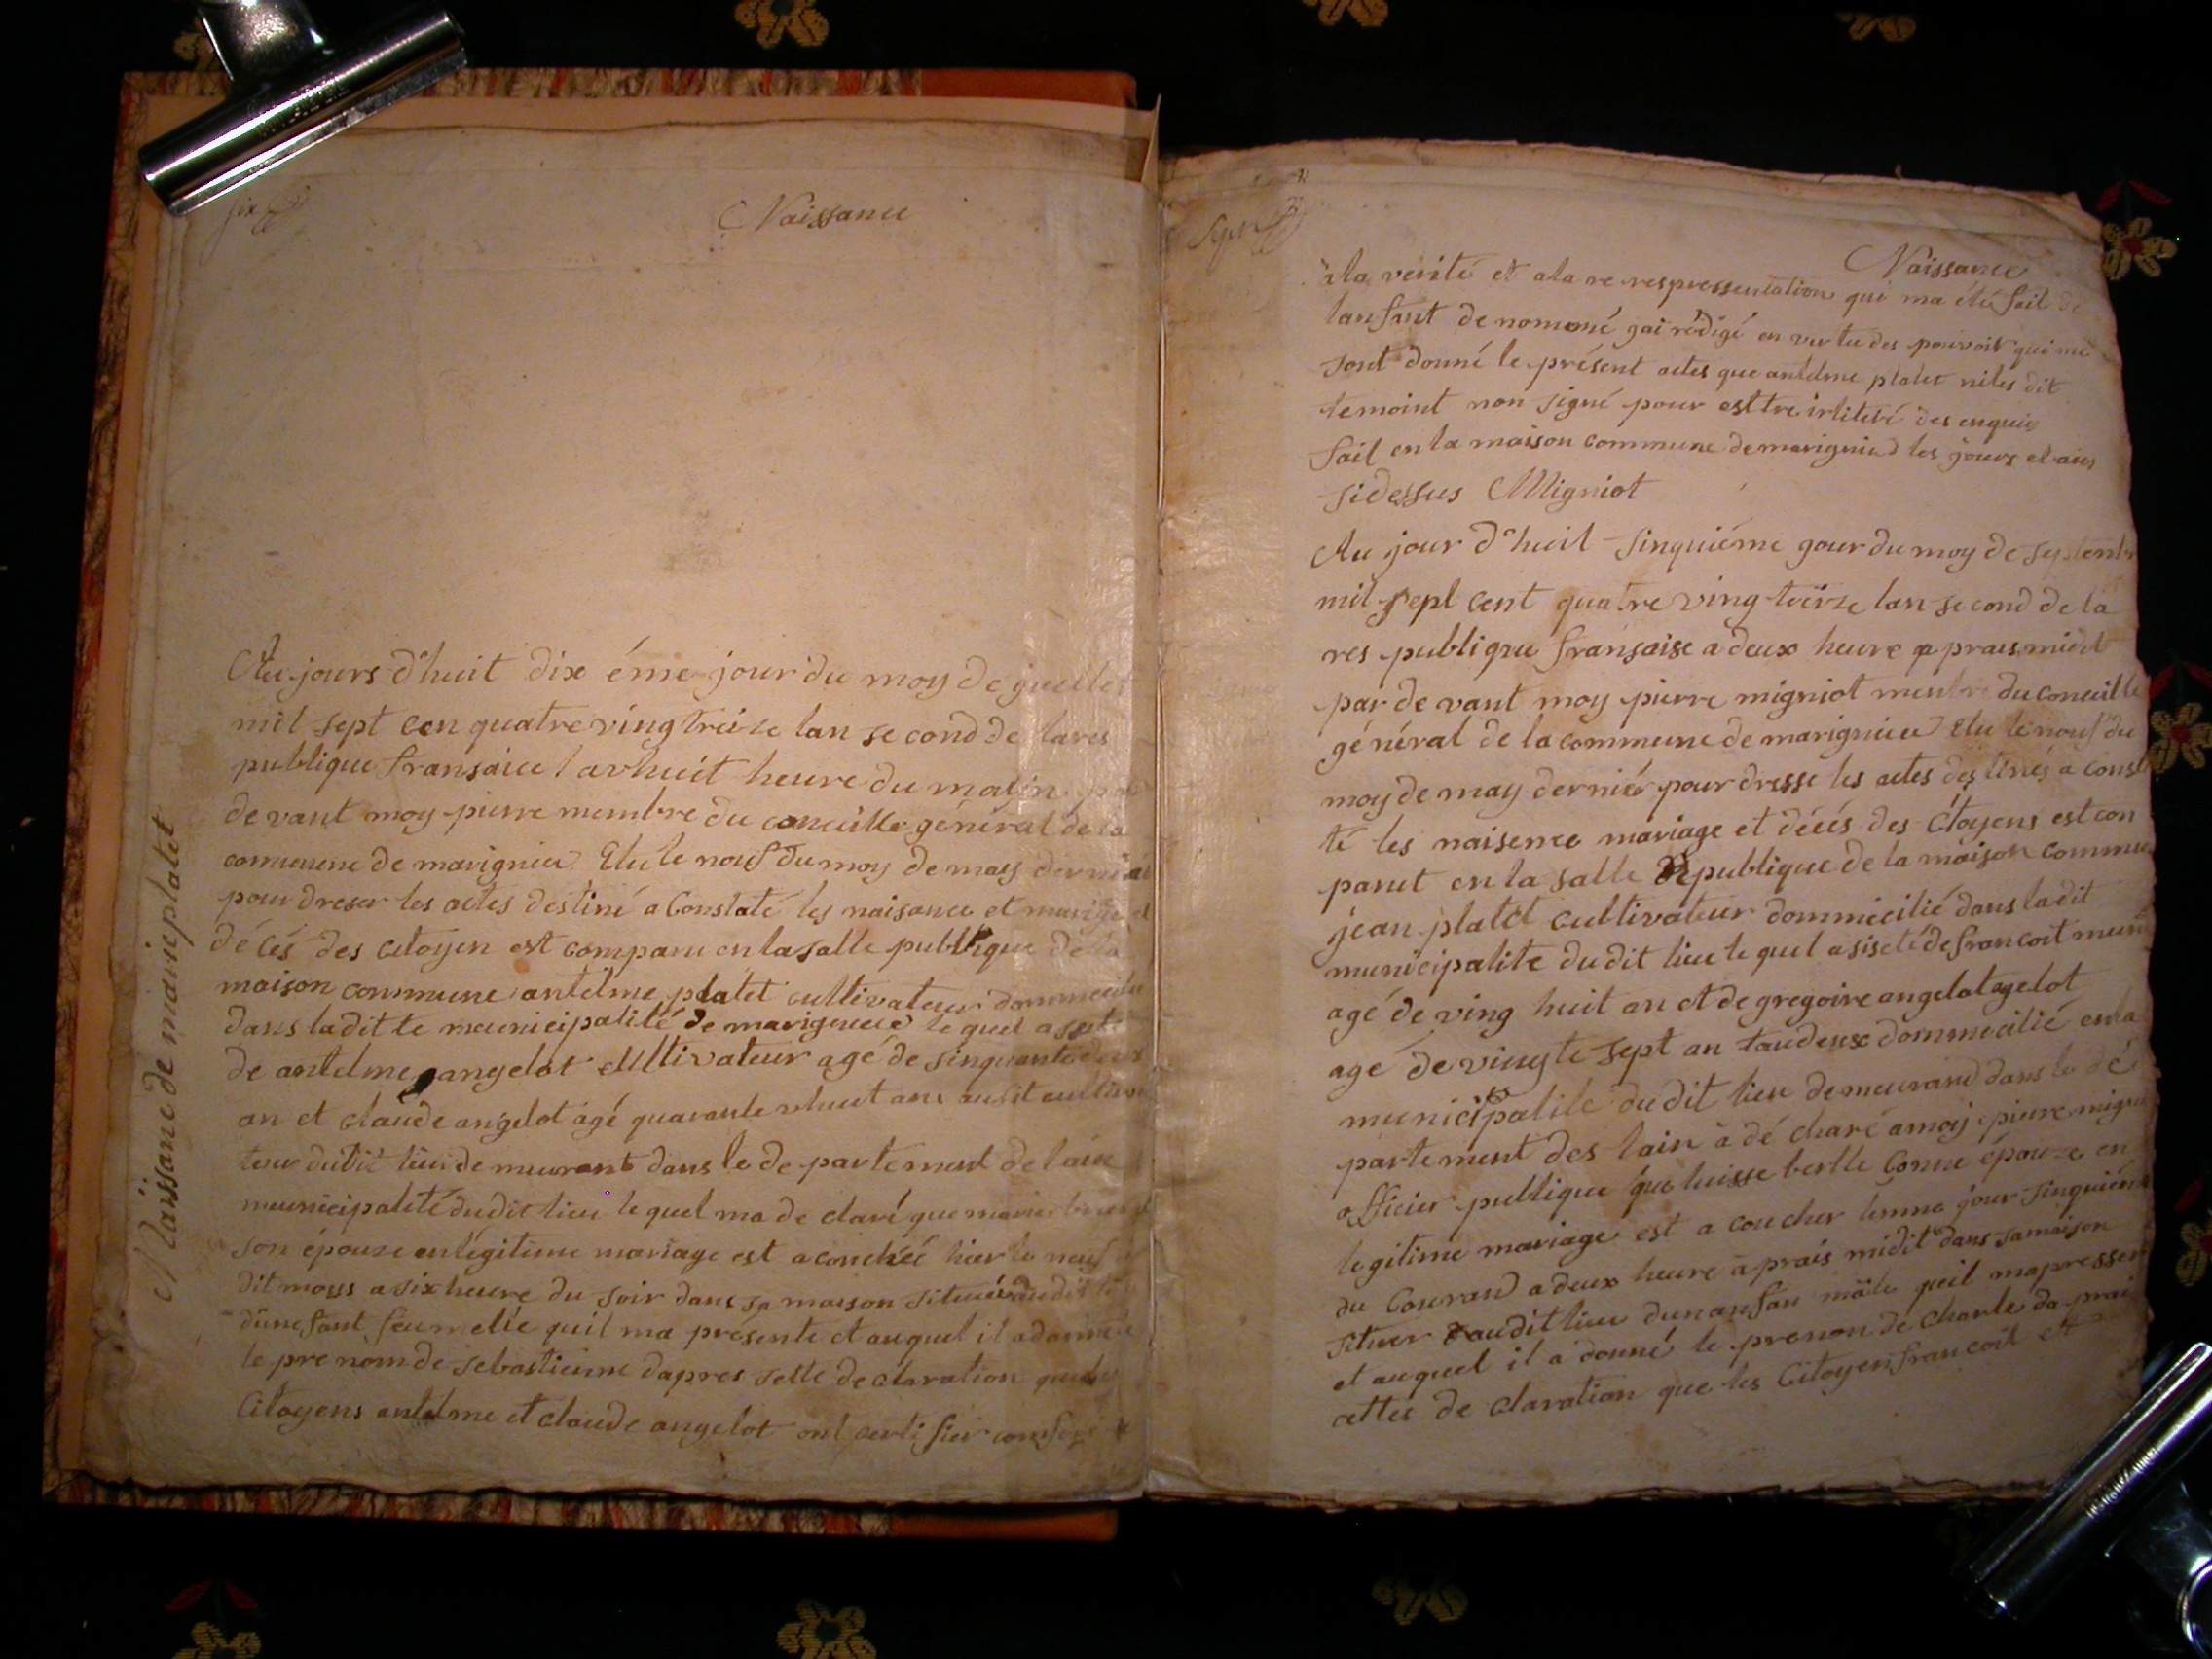 six
Naissance
Au jours d'huit dix éme jour du moy de
mil sept cen quatre ving treize lan se cond de la res
publique fransaice a huit heure du matin
de vant moy pierre membre du conceille général de la
commune de marignieu Elu le nouf du moy de may dernier
pour dreser les actes destiné a Constaté les naisance et mariage et
décés des citoyen est comparu en la salle publique de la
maison commune antelme platet cultivateur
dans ladit te meunicipalité de marignieu le quel
de antelme angelot cultivateur agé de sinquante
an et claude angelot agé quarante huit ans
teur dudit lieu de meurant dans le de partement de lain
meunicipalité dudit lieu le quel ma de claré que marie
son épouze en légitime mariage est acouchéé hier le neuf
dit moys a six heure du soir dans sa maison
dunefant feumelle quil ma présenté et auquel il a donné
le prenom de sebastienne dapres selle de claration que les
Citoyens antelme et claude angelot ont certifier
Naissance de marie platet
Naissance
a la verité et ala re respressentation qui ma été fait de
lanfant de nommé jai rédigé en vertu des pouvoir qui me
sont donné le présent actes que antelme platet niles dit
temoint non signé pour esttre des enquis
fait en la maison commune de marignieu les jours et ans
sidessus Migniot
Au jour d'huit sinquiéme jour du moy de septembr
mil sept cent quatre ving treize lan se cond de la
res publique fransaise a deux heure a prais midit
par de vant moy pierre migniot menbre du conceille
général de la commune de marignieu Elu le nouf du
moy de may dernier pour dresse les actes destinés a consta
té les naisence mariage et décés des Citoyens est con
parut en la salle Republique de la maison commune
jean platet cultivateur dommicilié dans ladit
municipalite dudit lieu le quel a sisté de francoit
agé de ving huit an et de gregoire angelot
agé de vingte sept an dommecilié en la
municipalite dudit lieu demeurand dans le dé
partement des lain a dé charé a moy pierre
officier publique que luisse berlle Conne épouze en
legitime mariage est a coucher lemme jour sinquiéme
du Courand a deux heure a prais midit dans sa maison
situer audit lieu dun anfan mâle queil mapressen
et auquel il a donné le prenon de charle da prai
cettes de claration que les Citoyen francoit et